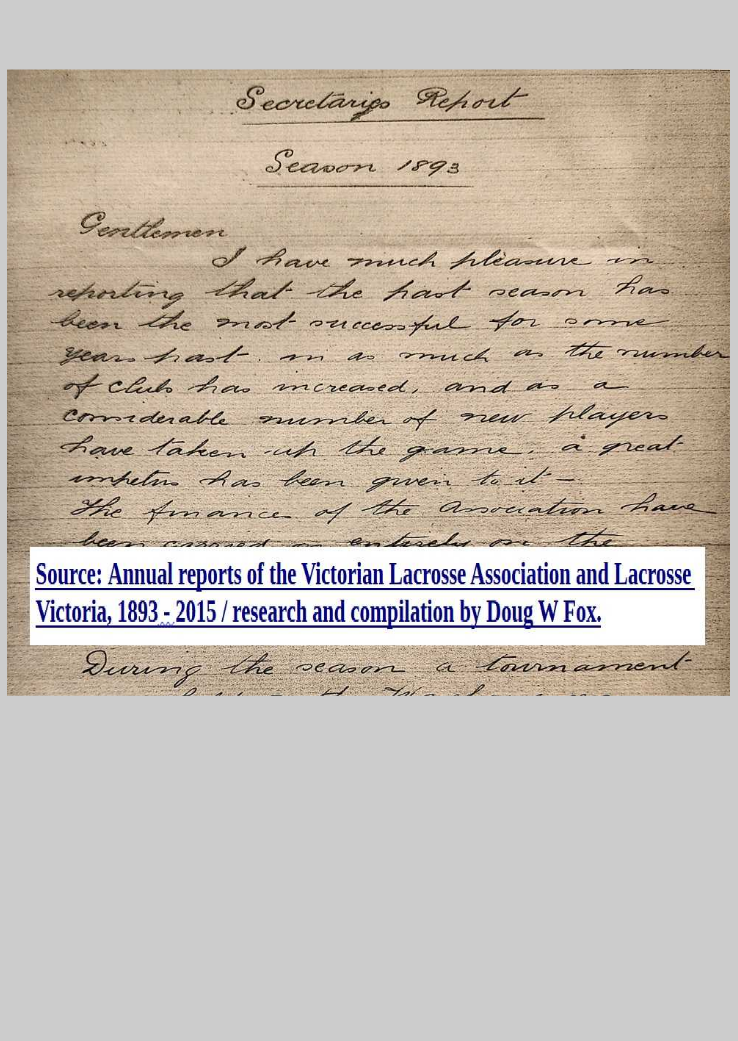 Secretaries Report
Season 1893
Gentlemen
I have much pleasure in
reporting that the past season has
been the most successful for some
years past. in as much as the number
of clubs has increased, and as a
considerable number of new players
have taken up the game, a great
impetus has been given to it –
The finances of the Association have
been carried on entirely on the
Source: Annual reports of the Victorian Lacrosse Association and Lacrosse
Victoria, 1893 - 2015 / research and compilation by Doug W Fox.
During the season a tournament